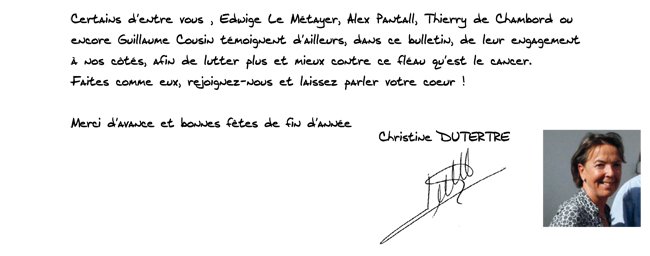 Certains d'entre vous , Edwige Le Métayer, Alex Pantall, Thierry de Chambord ou
encore Guillaume Cousin témoignent d'ailleurs, dans ce bulletin, de leur engagement
à nos côtés, afin de lutter plus et mieux contre ce fléau qu'est le cancer.
Faites comme eux, rejoignez-nous et laissez parler votre coeur !
Merci d'avance et bonnes fêtes de fin d'année
Christine DUTERTRE